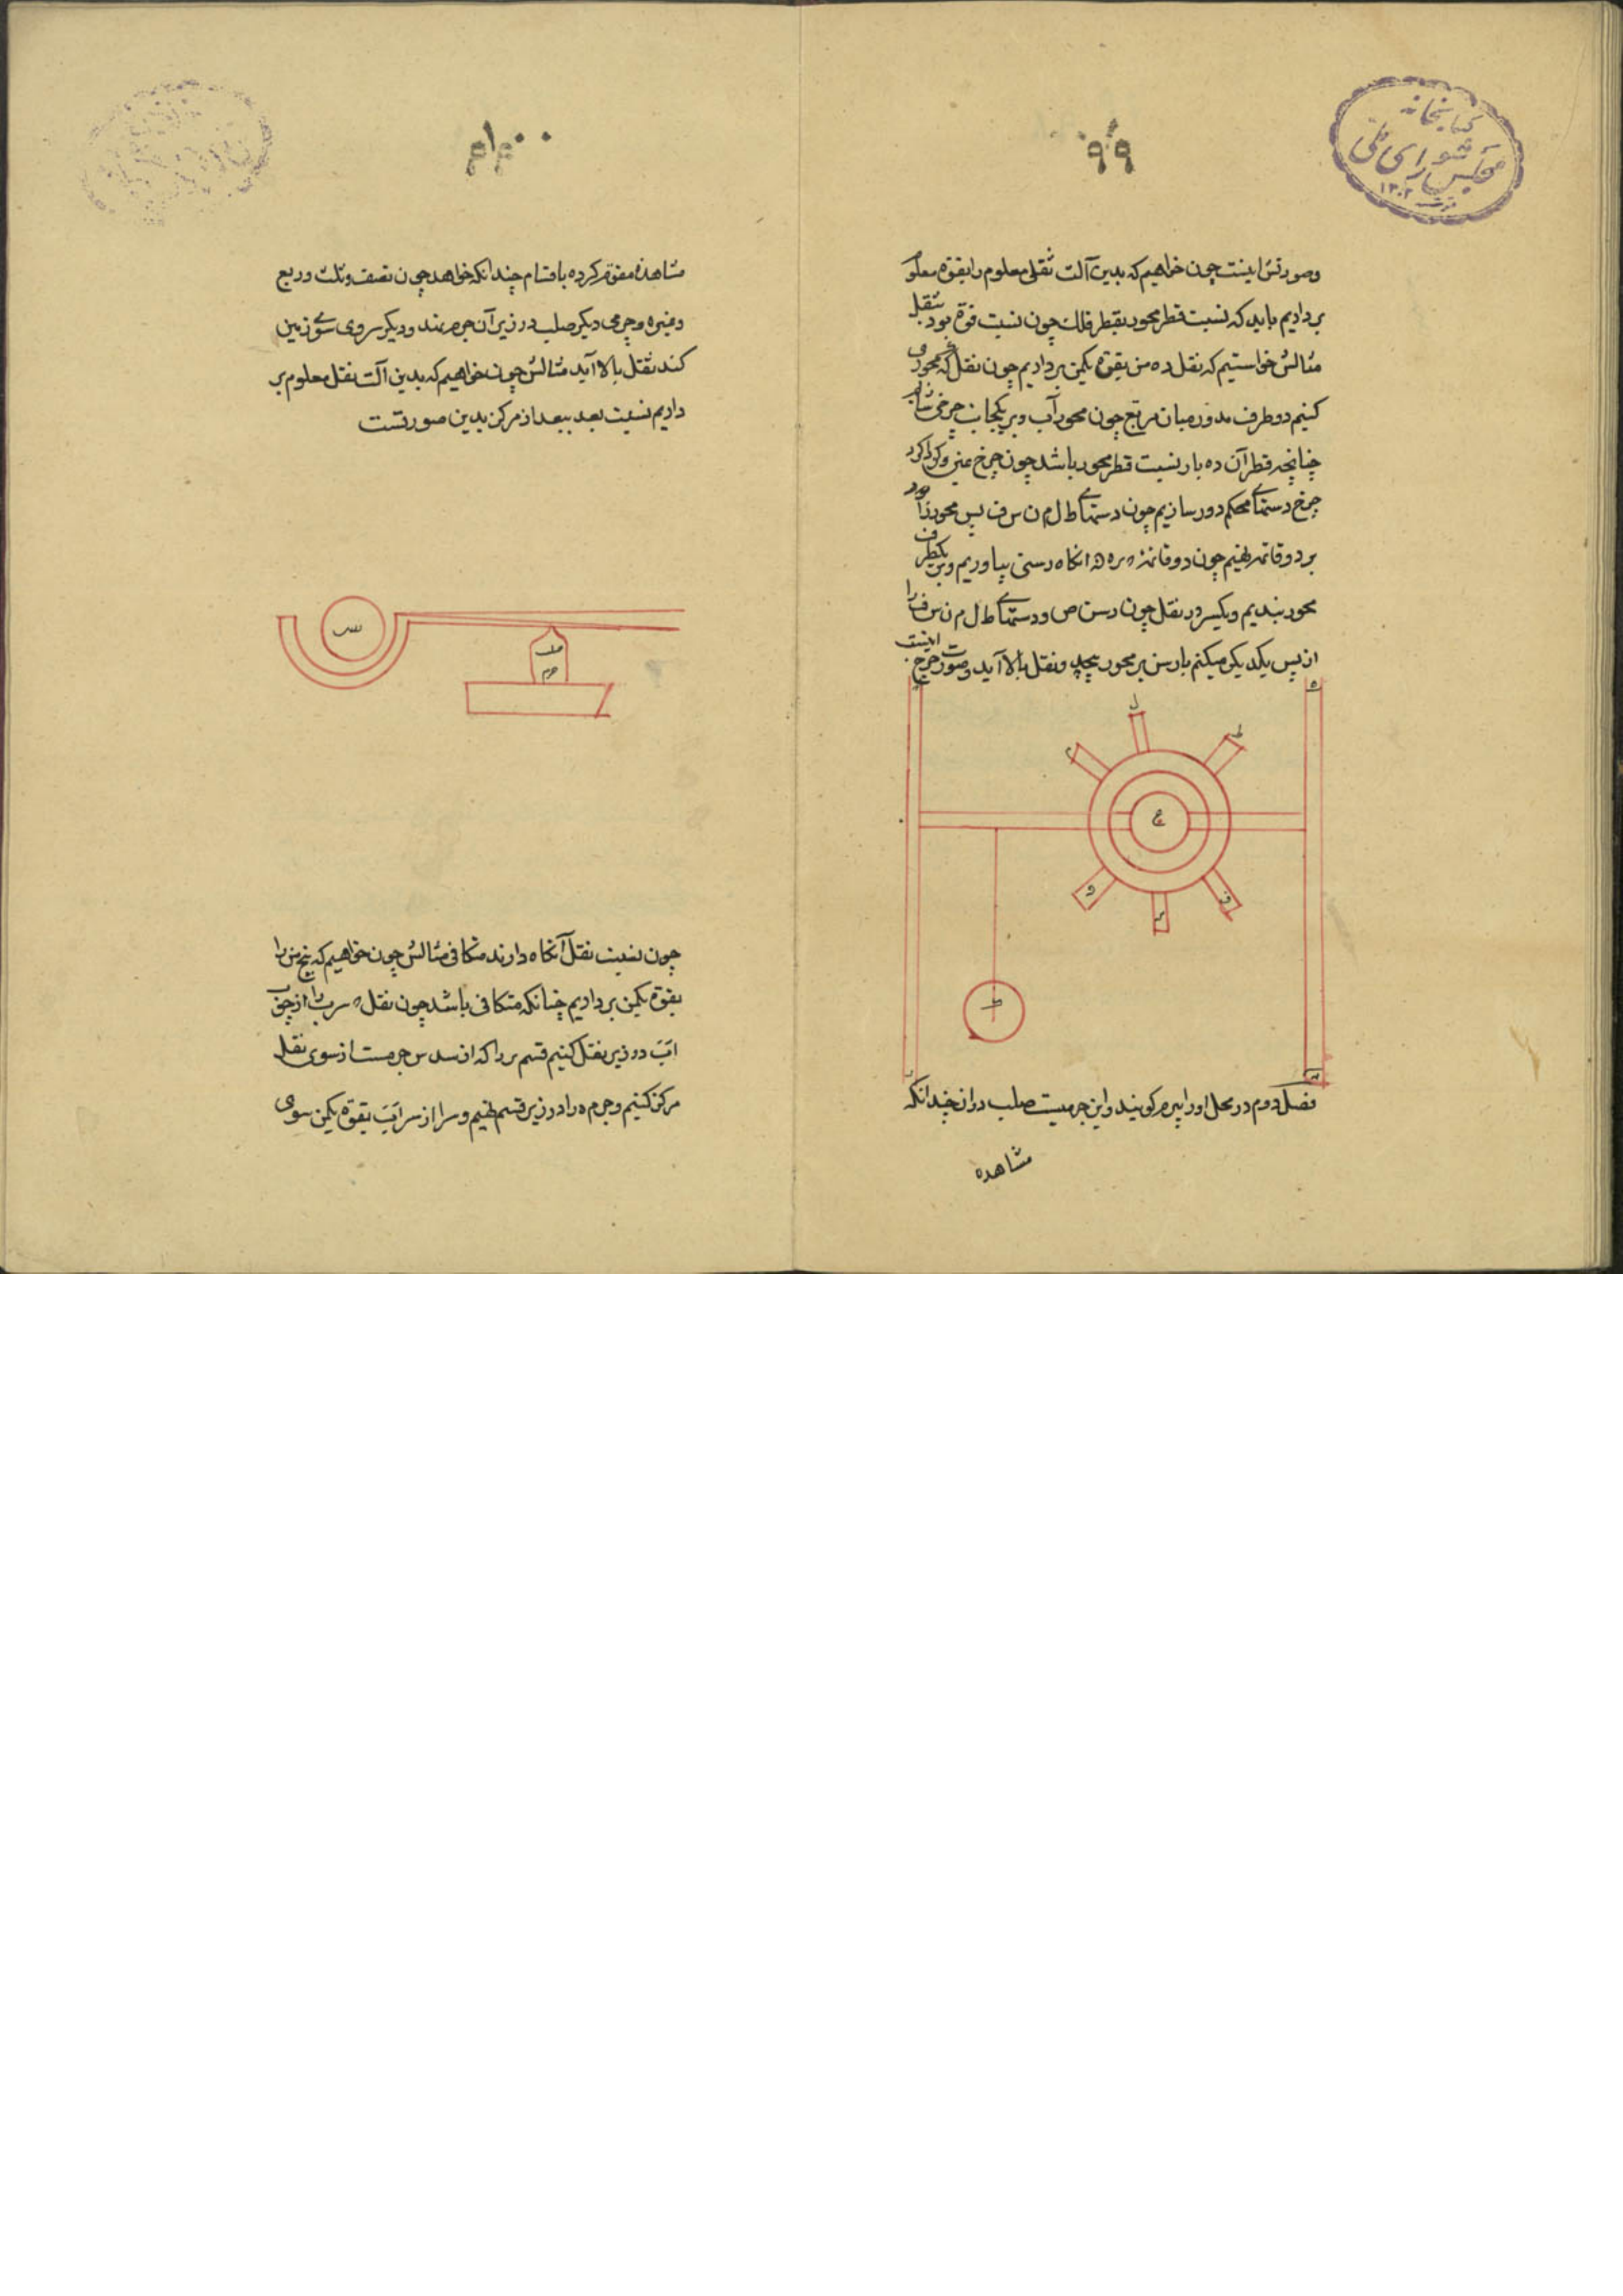 کتابخانه
مجلس شورای ملی
۱۳۰۲
۹۹
وصورتش اینست چون خواهیم که بدین آلت ثقلی معلوم را بقوة معلوم
برداریم باید که نسبت قطر محور بقطر فلک چون نسبت قوة بود بثقل
مثالش خواستیم که ثقل ده من بقوة یکمن برداریم چون ثقل محوری
کنیم دو طرف مدور میان مربع چون محور آب و بر یکجانب چرخی سازیم
چنانچه قطر آن ده بار نسبت قطر محور باشد چون چرخ و کرداکرد
چرخ دستهای محکم دور سازیم چون دستهای ط ل م ن س ف پس محور را
بر دو قائمه نهیم چون دو قائمه ه ر ه انکاه رسنی بیاوریم و بر یکطرف
محور بندیم و یکسر در ثقل چون رسن ص و دستهای ط ل م ن س ف را
از پس یکدیکر میکنم تا رسن بر محور پیچد و ثقل بالا آید وصورت چرخ اینست
ه
ل
ط
م
ع
ف
ن
س
فصل دوم در محل او را بیرم کویند و این جرمیست صلب دراز چندانکه
مشاهده
۱۰۰
مشاهده مفتوم کرده باقسام چندانکه خواهد چون نصف و ثلث و ربع
و غیره و جرمی دیکر صلب در زیر آن جرم نهند و دیکر سر وی سوی زمین
کند ثقل بالا آید مثالش چون خواهیم که بدین آلت ثقل معلوم بر
داریم نسبت بعد ببعد از مرکز بدین صورتست
چون نسبت ثقل آنکاه دارند متکافی مثالش چون خواهیم که پنج من را
بقوة یکمن برداریم چنانکه متکافی باشد چون ثقل ه سر را از چوب
اب در زیر ثقل کنیم قسم بر را که از سدس جرمست از سوی ثقل
مرکز کنیم و جرم ه را در زیر قسم نهیم و سر ا از سر اب بقوة یکمن سوی